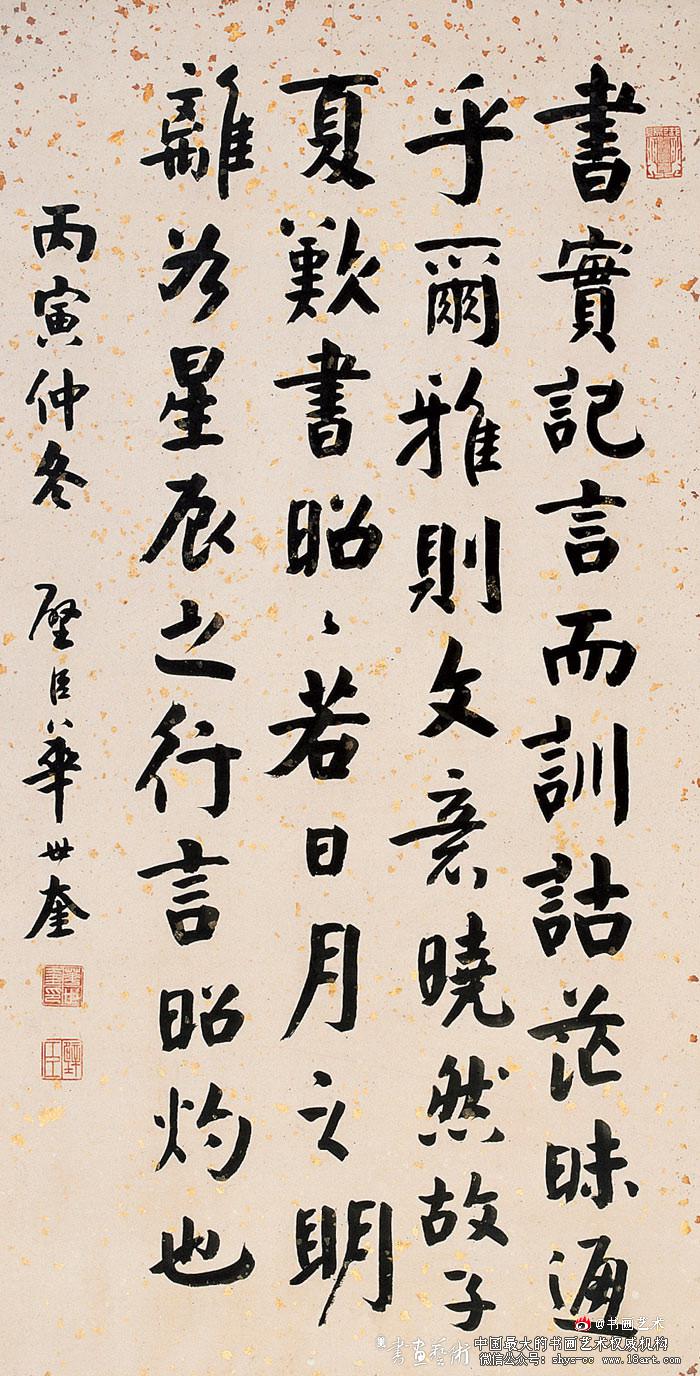 書實記言而訓詁茫昧通
乎爾雅則文意曉然故子
夏歎書昭〻若日月之明
離星辰之行言昭灼也
丙寅仲冬 璧臣華世奎
@书画艺术
書画藝術
中国最大的书画艺术权威机构
微信公众号：shys-cc www.18art.com